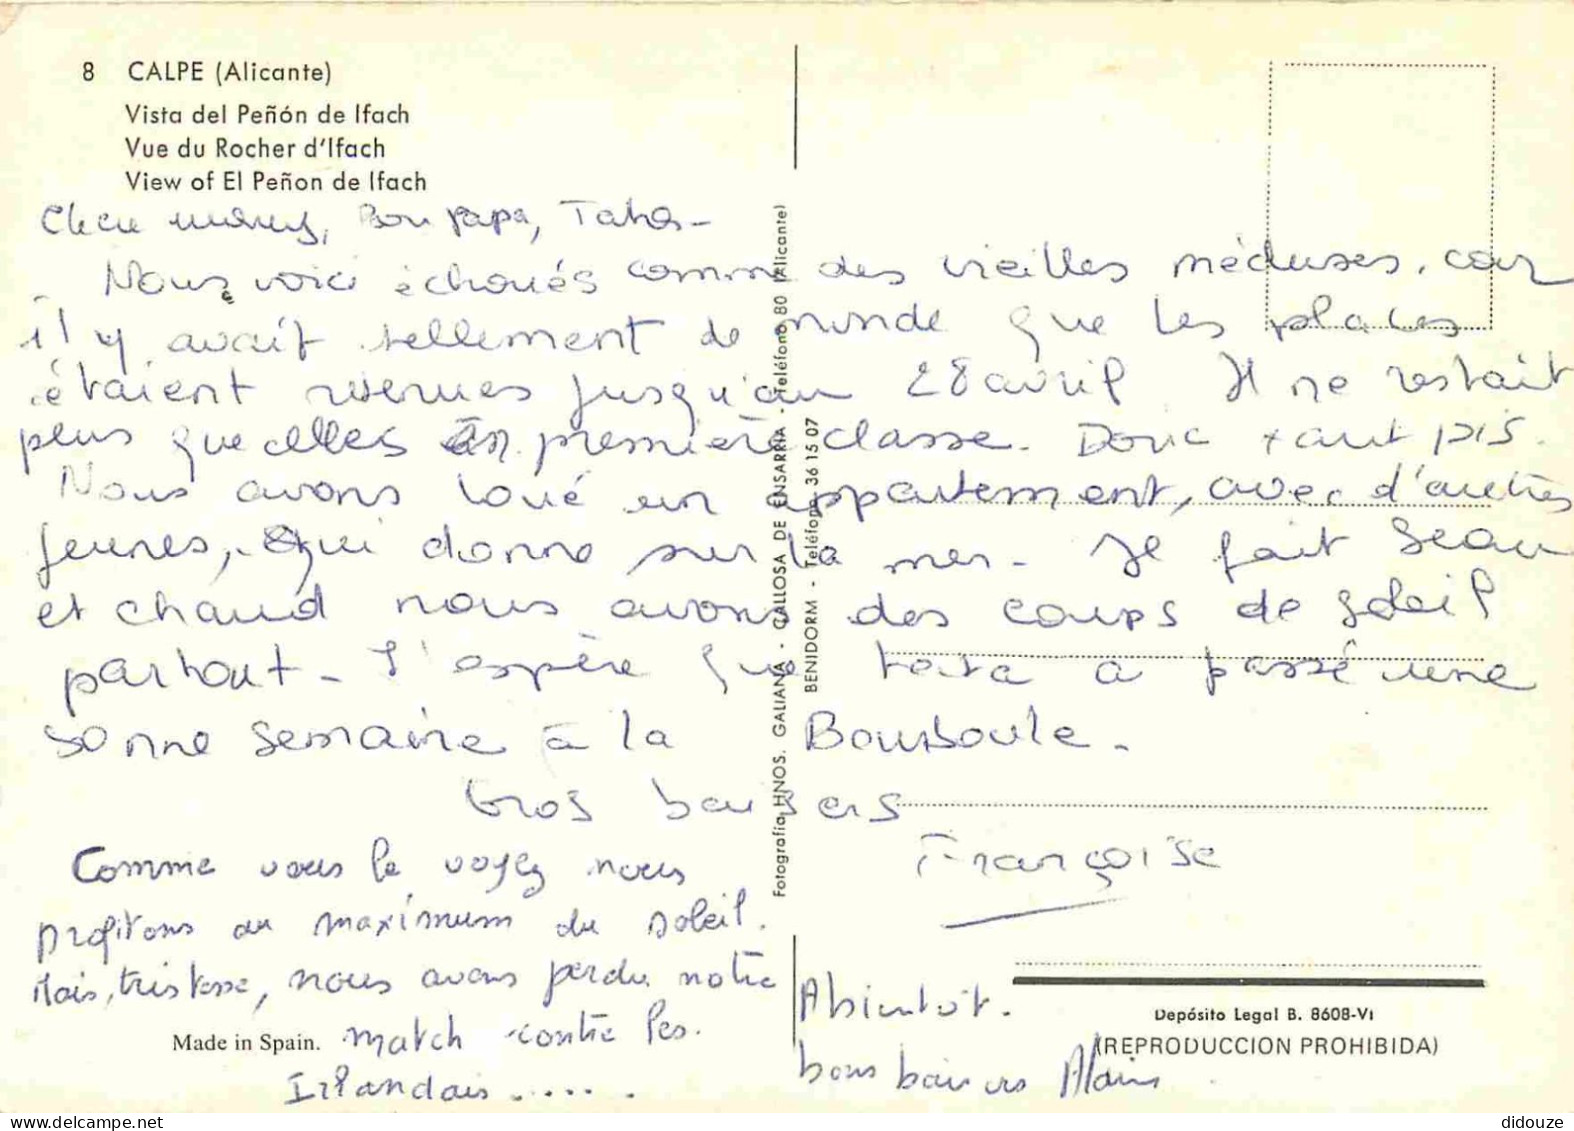 8 CALPE (Alicante)
Vista del Peñón de Ifach
Vue du Rocher d'Ifach
View of El Peñon de Ifach
Bon papa,
Nous voici échoués comme des vieilles méduses, car
il y avait tellement de monde que les places
étaient jusqu'au 28 avril. Il ne restait
plus que celles en première classe. Donc tant pis.
Nous avons loué un appartement, avec d'autres
jeunes, qui donne sur la mer. Il fait beau
et chaud nous avons des coups de soleil
partout - J'espère que a passé une
bonne semaine à la Bourboule.
Gros baisers
Françoise
Comme vous le voyez nous
profitons au maximum du soleil.
Mais, tristesse, nous avons perdu notre
match contre les.
Irlandais .....
A bientôt.
bons baisers Alain
Fotografía HNOS. GALIANA - CALLOSA DE ENSARRIA - Teléfono 80 (Alicante)
BENIDORM - Teléfono 36 15 07
Made in Spain.
Depósito Legal B. 8608-VI
(REPRODUCCION PROHIBIDA)
didouze